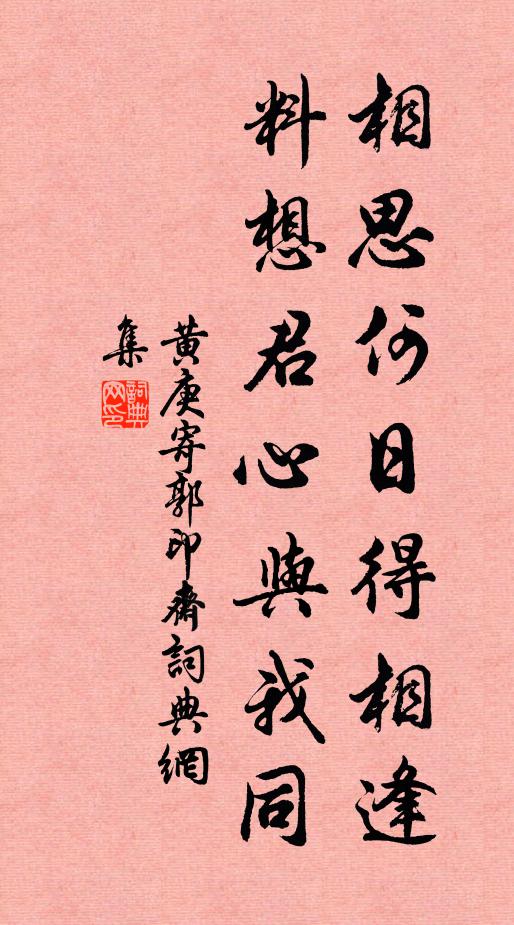 相思何日得相逢
料想君心與我同
黄庚寄郭印齋詞典網
集
詞典網印